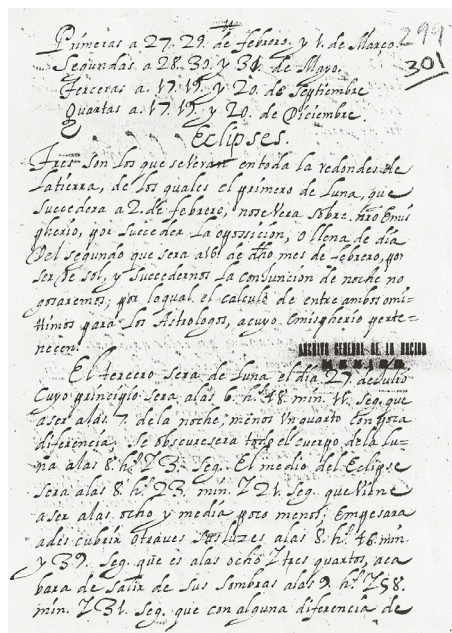 299
301
Primeras a 27. 29. de febrero. y 1. de Março.
Segundas a 28. 30. y 31. de Mayo.
Terceras a. 17. 19. y 20. de Septiembre
Quartas a. 17. 19. y 20. de Diciembre.
Eclipses.
Tres son los que se veran en toda la redondes de
la tierra, de los quales el primero de Luna, que
succedera a 2. de febrero, no se Vera sobre. nrõ Emis
pherio, por succeder la oposicion, o llena de dia
Del segundo que sera a 16. de dho mes de febrero, por
ser de sol, y succedernos la conjuncion de noche no
gosaremos; por lo qual el calculo de entre ambos omi-
ttimos para los Astrologos, a cuyo Emispherio perte-
necen.
ARCHIVO GENERAL DE LA NACION
MEXICO
El tercero sera de Luna el dia 27. de Julio
Cuyo principio sera a las 6. hs. 48. min. 11. seg. que
a ser a las 7. de la noche, menos Un quarto con poca
diferencia, se obscuresera todo el cuerpo de la lu-
na a las 8. hs. Y 3. seg. El medio del Eclipse
sera a las 8. hs. 23. min. Y 21. seg. que viene
a ser a las ocho y media poco menos; Empesara
a descubrir otra ves sus luzes a las 8. hs. 46. min.
y 39. seg. que es a las ocho Y tres quartos, aca
bara de salir de sus sombras a las 9. hs. Y 58.
min. Y 31. seg. que con alguna diferencia de